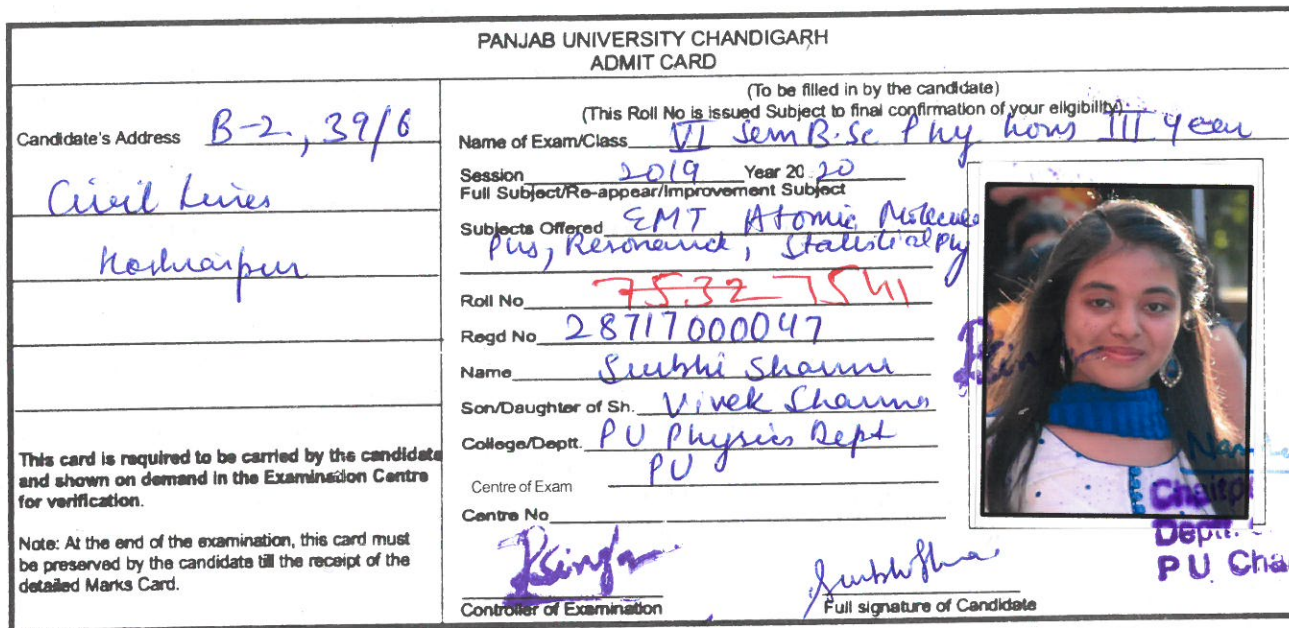 PANJAB UNIVERSITY CHANDIGARH
ADMIT CARD
Candidate's Address B-2, 39/6
Civil Lines
Hoshiarpur
This card is required to be carried by the candidate
and shown on demand in the Examination Centre
for verification.
Note: At the end of the examination, this card must
be preserved by the candidate till the receipt of the
detailed Marks Card.
(To be filled in by the candidate)
(This Roll No is issued Subject to final confirmation of your eligibility).
Name of Exam/Class VI Sem B.Sc Phy hons III year
Session 2019 Year 20 20
Full Subject/Re-appear/Improvement Subject
Subjects Offered EMT Atomic Molecule
Phs, Resonance, Statistical Phy
Roll No 7532 7541
Regd No 28717000047
Name Surbhi Sharma
Son/Daughter of Sh. Vivek Sharma
College/Deptt. PU Physics Dept
Centre of Exam PU
Centre No
RSingh
Controller of Examination
Full signature of Candidate
RSingh
Deptt.
P U Cha